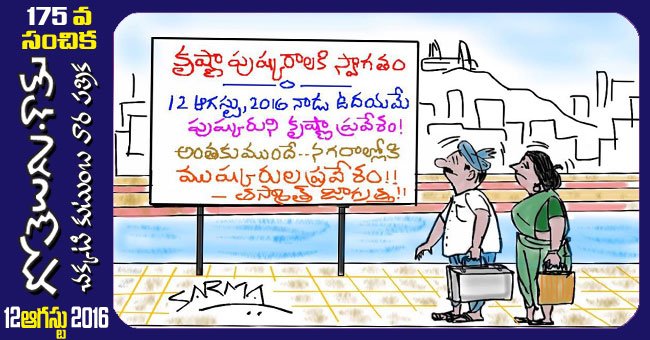 175 వ
సంచిక
గోతెలుగు.కామ్
చక్కటి కుటుంబ వార పత్రిక
12ఆగస్టు 2016
కృష్ణా పుష్కరాలకి స్వాగతం
12 ఆగస్టు, 2016 నాడు ఉదయమే
పుష్కరుని కృష్ణా ప్రవేశం!
అంతకుముందే.. నగరాల్లోకి
ముష్కరుల ప్రవేశం!!
– తస్మాత్ జాగ్రత్త!!
SARMA